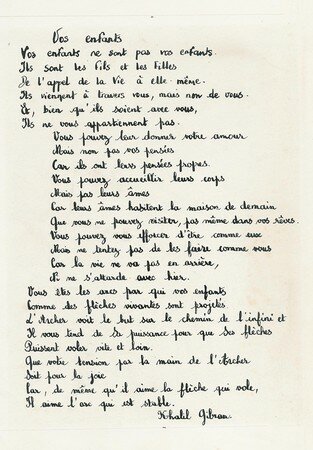 Vos enfants
Vos enfants ne sont pas vos enfants.
Ils sont les fils et les filles
De l'appel de la Vie à elle-même.
Ils viennent à travers vous, mais non de vous.
Et, bien qu'ils soient avec vous,
Ils ne vous appartiennent pas.
Vous pouvez leur donner votre amour
Mais non pas vos pensées
Car ils ont leurs pensées propres.
Vous pouvez accueillir leurs corps
Mais pas leurs âmes
Car leurs âmes habitent la maison de demain
Que vous ne pouvez visiter, pas même dans vos rêves.
Vous pouvez vous efforcer d'être comme eux
Mais ne tentez pas de les faire comme vous
Car la vie ne va pas en arrière,
Ni ne s'attarde avec hier.
Vous êtes les arcs par qui vos enfants
Comme des flèches vivantes sont projetés
L'Archer voit le but sur le chemin de l'infini et
Il vous tend de Sa puissance pour que Ses flèches
Puissent voler vite et loin.
Que votre tension par la main de l'Archer
Soit pour la joie
Car, de même qu'il aime la flèche qui vole,
Il aime l'arc qui est stable.
Khalil Gibran